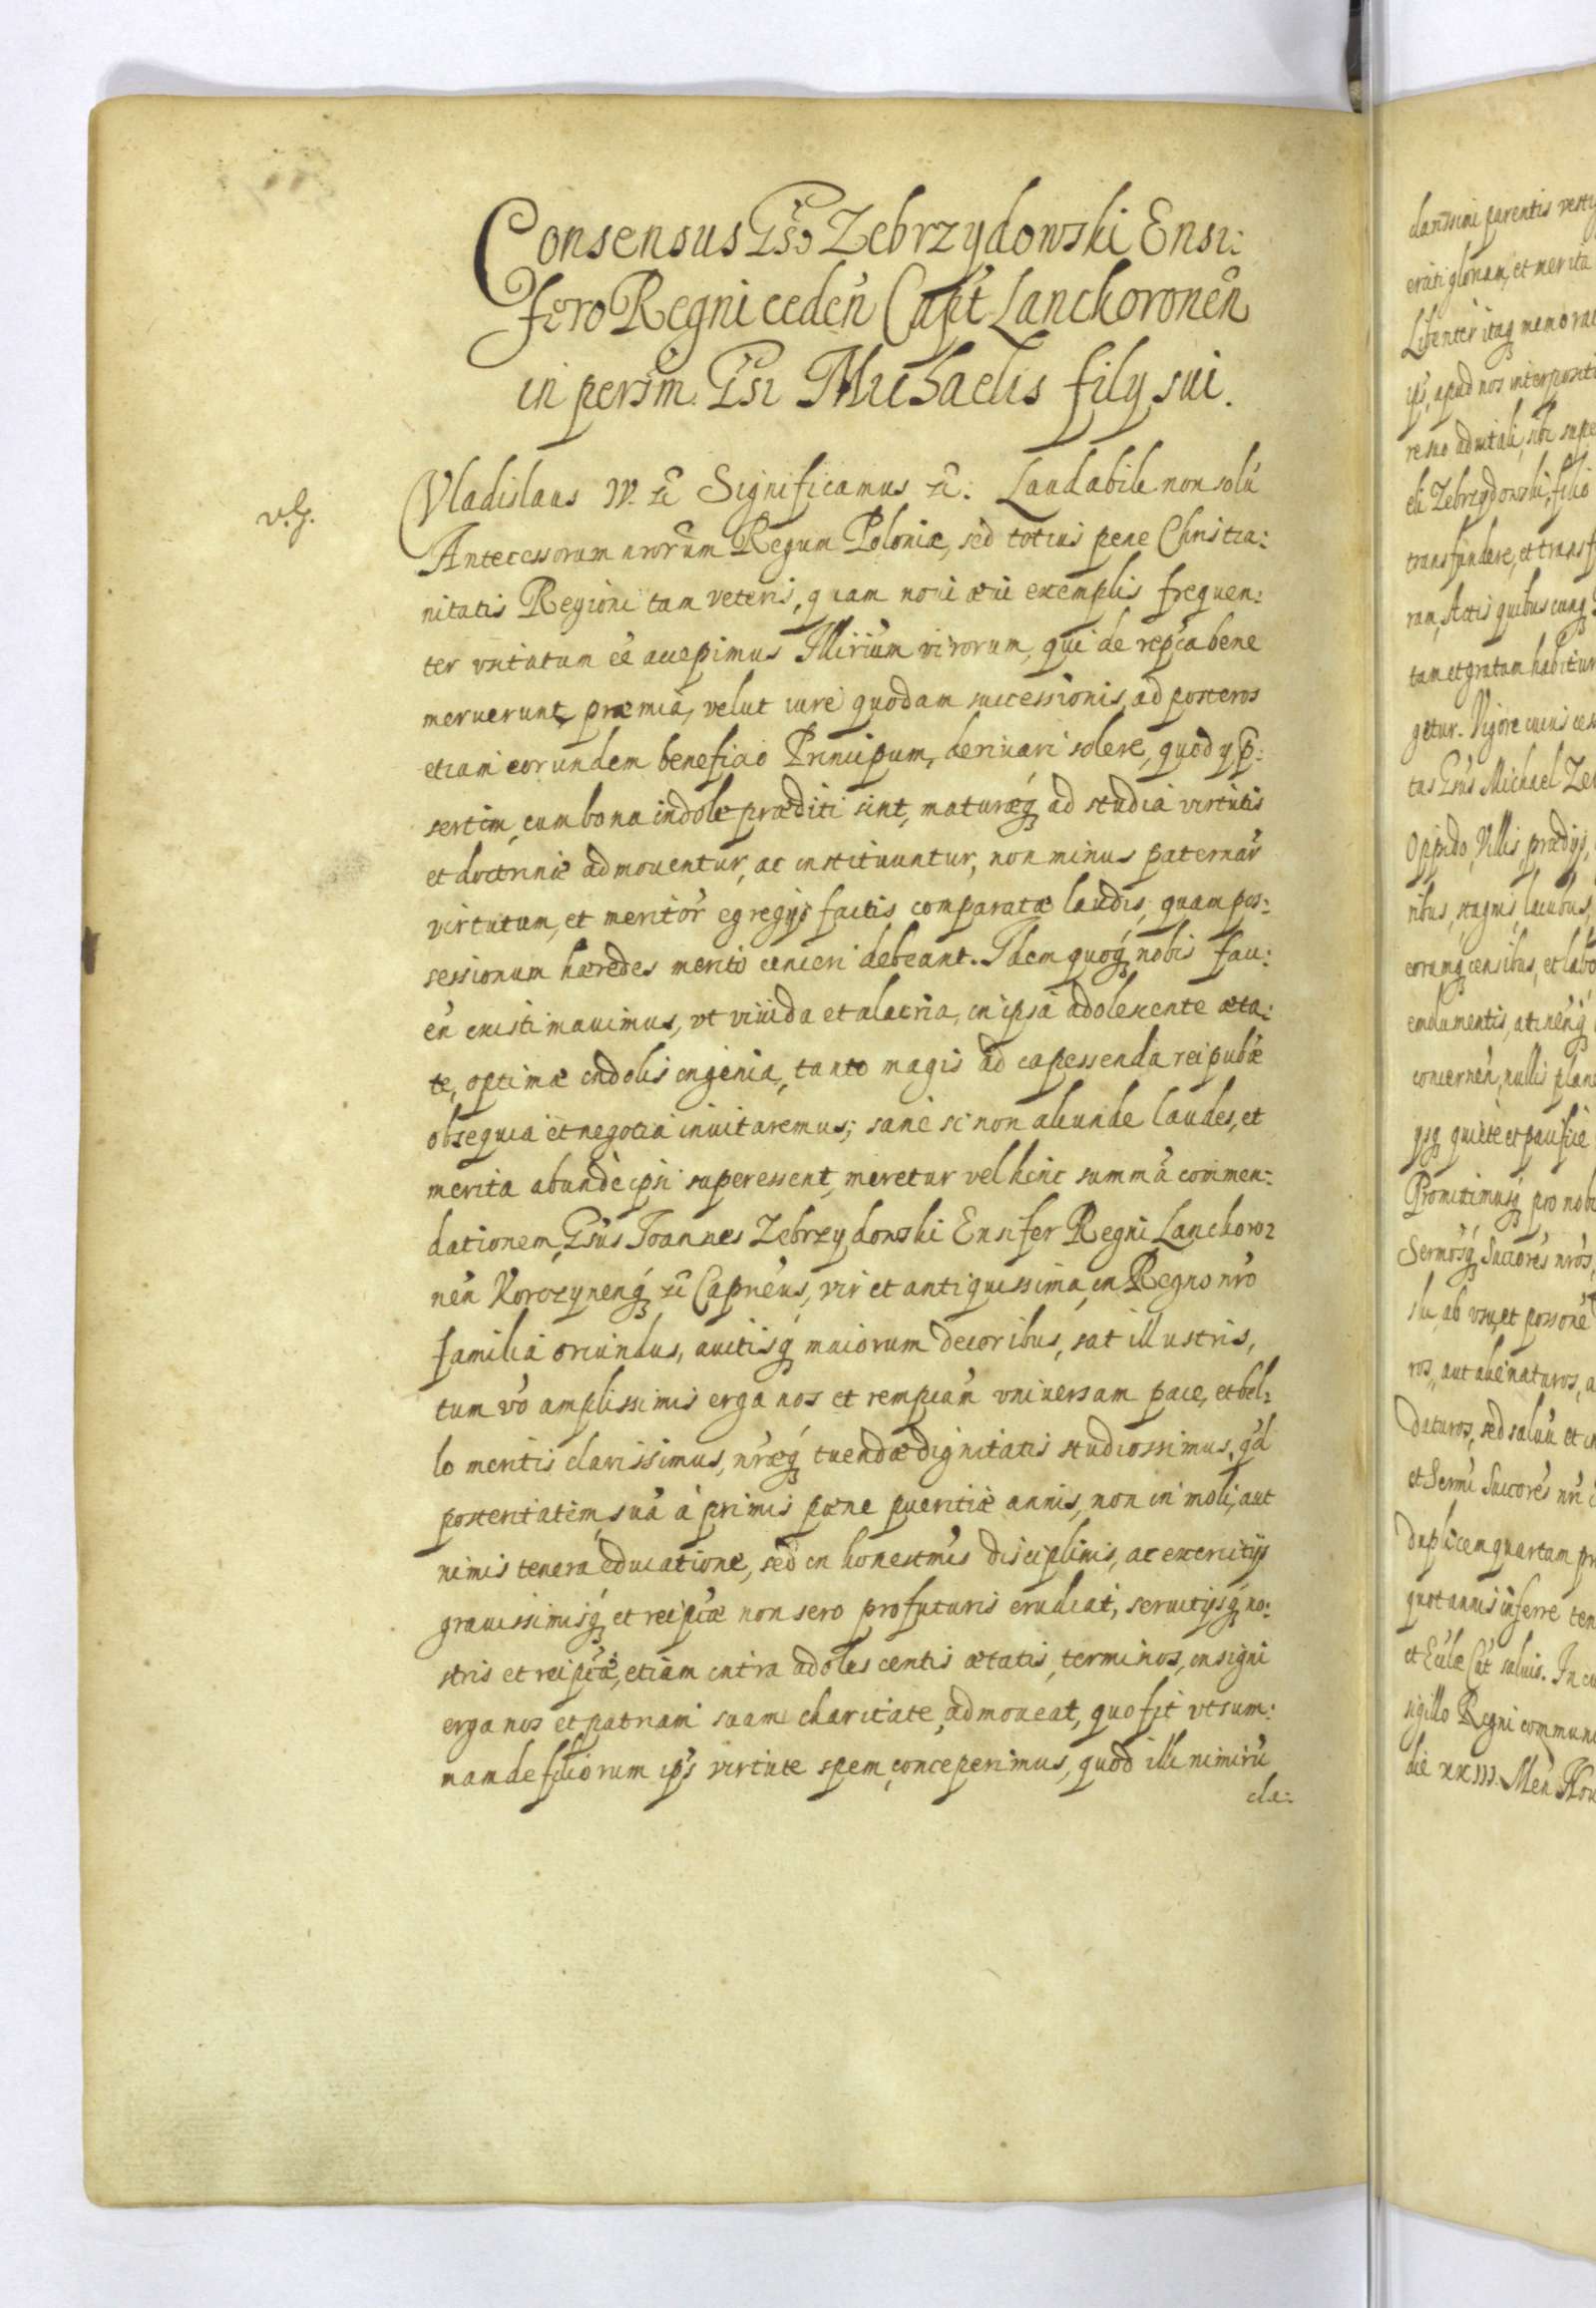 Consensus Gso Zebrzydowski Ensi:
fero Regni ceden Capt Lanckoronen
in persm. Gsi Michaelis filij sui.
v.g.
Vladislaus IV. &c Significamus &c: Laudabile non solu
Antecessorum nrorum Regum Poloniæ, sed totius pene Christia:
nitatis Regioni tam veteris, quam noui æui exemplis frequen:
ter vsitatum eé accepimus Illrium virorum, qui de repca bene
meruerunt, præmia, velut iure quodam successionis, ad posteros
etiam eorundem beneficio Principum, deriuari solere, quod ij p:
sertim, cum bona indole præditi sint, maturæq ad studia virtutis
et doctrinæ admouentur, ac instituuntur, non minus paternar
virtutum, et meritor egregijs factis comparatæ laudis, quam pos:
sessionum hæredes merito censeri debeant. Idem quoq nobis fac:
en existimauimus, vt viuida et alacria, in ipsa adolescente æta:
te, optimæ indolis ingenia, tanto magis ad capessenda reipubæ
obsequia et negotia inuitaremus; sane si non aliunde laudes, et
merita abunde ipsi superessent, meretur vel hinc summa commen:
dationem, Gsus Joannes Zebrzydowski Ensifer Regni Lanckoro:
nen Korczynenq &c Capneus, vir et antiquissima, in Regno nro
familia oriundus, auitisq maiorum decoribus, sat illustris,
tum vo amplissimis erga nos et rempcan vniuersam pace, et bel:
lo meritis clarissimus, nræq tuendæ dignitatis studiossimus, qd
posteritatem sua a primis pæne pueritiæ annis, non in moli, aut
nimis tenera educatione, sed in honestmis disciplinis, ac exercitijs
grauissimisq et reipcæ non sero profuturis erudiat, seruitijsq no:
stris et reipcæ, etiam intra adolescentis ætatis, terminos, insigni
erga nos et patriam suam charitate, admoueat, quo fit vt sum:
mam de filiorum ips virtute spem conceperimus, quod illi nimiru
cla:
clarissimi parentis
et merita
Libenter itaq
apud nos
eli Zebrzydowski, filio
transfundere, et
ram, Actis quibuscunq
tam et gratam
getur. Vigore cuius
tas Gsus Michael
Oppido, Villis, prædijs,
stagnis, lacubus,
censibus, et
nullis
quiete et pacifice
Promittimusq pro
Sermosq Succores nros,
ab vsu, et possone
ros, aut alienaturos,
daturos, sed saluu et
et Sermi Succores nri
Duplicem quartam
quot annis inferre
et Eccæ Cat saluis. In
sigillo Regni
die XXIII. Men